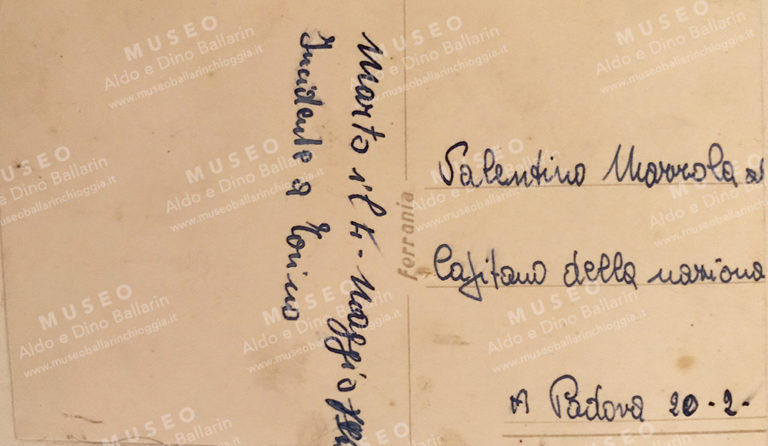 Morto il 4 - Maggio
Incidente a Torino
ferrania
Valentino Mazzola
Capitano della naziona
A Padova 20-2-
MUSEO
Aldo e Dino Ballarin
www.museoballarinchioggia.it